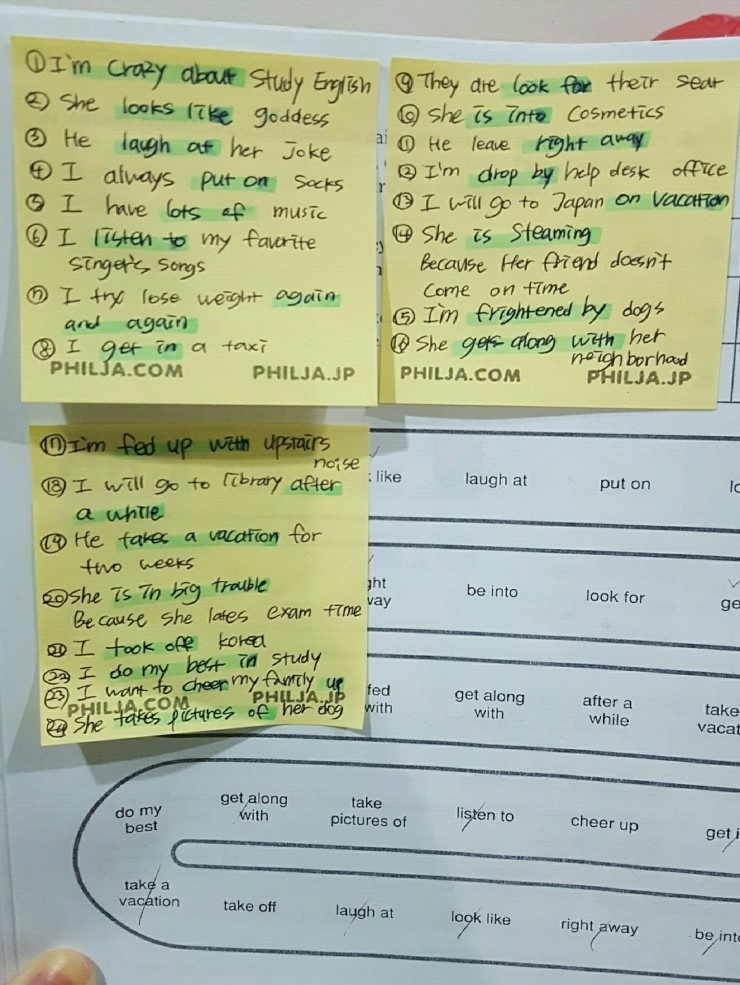 ① I'm crazy about study English
② She looks like goddess
③ He laugh at her Joke
④ I always put on socks
⑤ I have lots of music
⑥ I listen to my favorite
singer's songs
⑦ I try lose weight again
and again
⑧ I get in a taxi
PHILJA.COM PHILJA.JP
⑨ They are look for their seat
⑩ she is into Cosmetics
⑪ He leave right away
⑫ I'm drop by help desk office
⑬ I will go to Japan on vacation
⑭ She is Steaming
Because Her friend doesn't
come on time
⑮ I'm frightened by dogs
⑯ She gets along with her
neighborhood
PHILJA.COM PHILJA.JP
⑰ I'm fed up with upstairs
noise
⑱ I will go to library after
a while
⑲ He takes a vacation for
two weeks
⑳ She is in big trouble
Because she lates exam time
㉑ I took off korea
㉒ I do my best in study
㉓ I want to cheer my family up
PHILJA.COM PHILJA.JP
㉔ She takes pictures of her dog
like laugh at put on
be into look for
fed
with get along
with after a
while take
do my
best get along
with take
pictures of listen to cheer up get i
take a
vacation take off laugh at look like right away be into